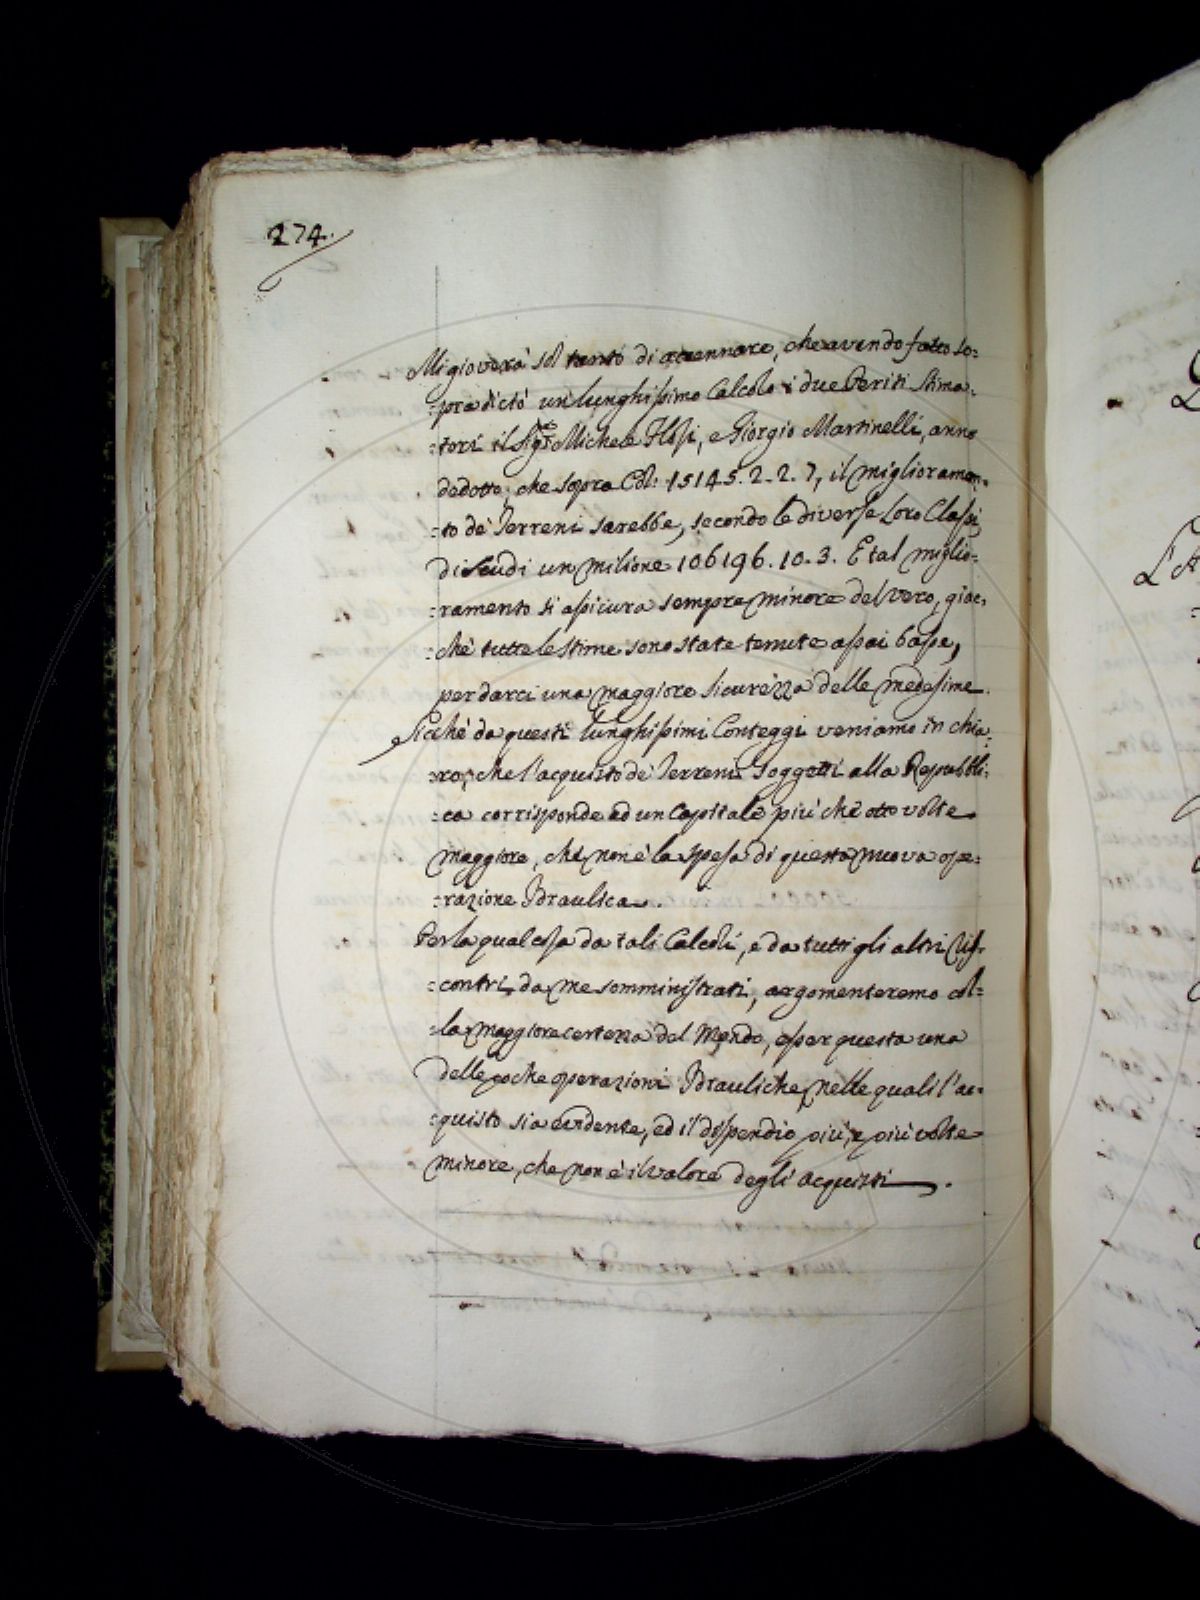 274.
Mi gioverà sol tanto di accennare, che avendo fatto so=
:pra dictò un lunghissimo Calcolo i due Periti Stima=
:tori il Sig.re Michele Flosi, e Giorgio Martinelli, anno
dedotto, che sopra Col: 15145. 2. 2. 7, il miglioramen=
:to de' Terreni sarebbe, secondo le diverse Loro Classi
di Scudi un milione 106196. 10. 3. E tal miglio=
:ramento si assicura sempre minore del vero, giac=
:chè tutte le stime sono state tenute assai basse,
per darci una maggiore sicurezza delle medesime.
Sicchè da questi lunghissimi Conteggi veniamo in chia=
:ro, che l'acquisto de' Terreni Soggetti alla Repubbli=
:ca corrisponde ad un Capitale più che otto volte
maggiore, che non è la spesa di questa nuova ope=
:razione Idraulica.
Per la qual cosa da tali Calcoli, e da tutti gli altri Ris=
:contri da me somministrati, argomenteremo col=
:la maggiore certezza del Mondo, esser questa una
delle poche operazioni Idrauliche, nelle quali l'ac=
:quisto sia evidente, ed il dispendio più, e più volte
minore, che non è il valore degli acquisti.
L'A